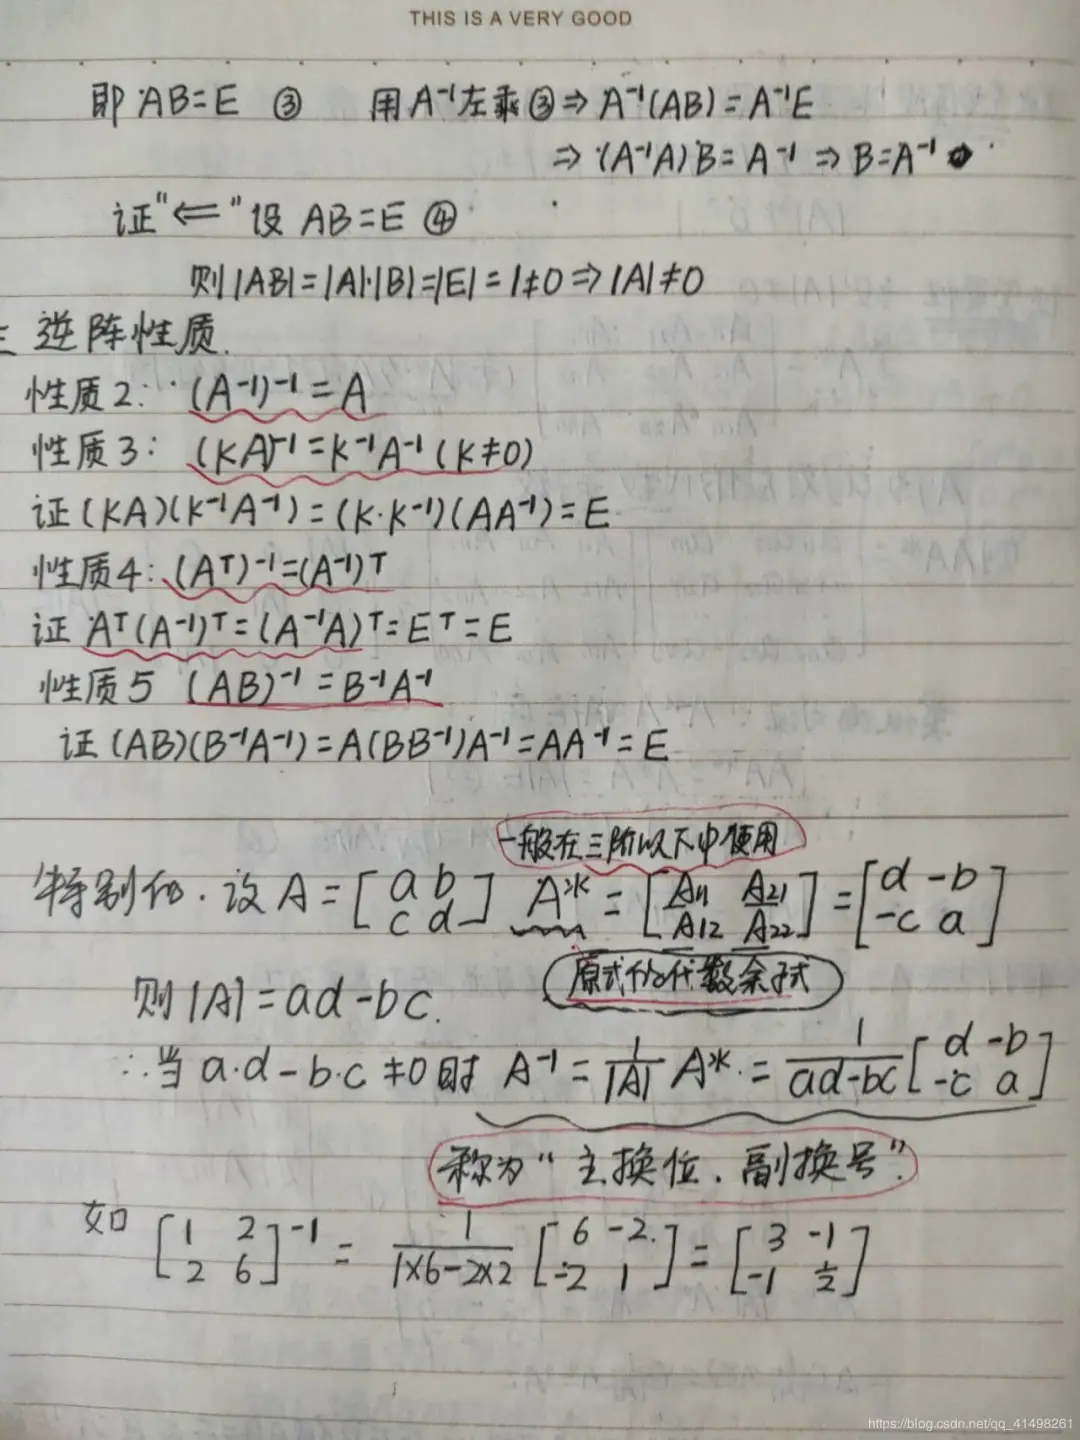 THIS IS A VERY GOOD
即 AB=E ③ 用A⁻¹左乘③⇒ A⁻¹(AB)=A⁻¹E
⇒ (A⁻¹A)B=A⁻¹ ⇒ B=A⁻¹
证"⇐"设 AB=E ④
则|AB|=|A|·|B|=|E|=1≠0⇒|A|≠0
三 逆阵性质.
性质2: (A⁻¹)⁻¹=A
性质3: (KA)⁻¹=K⁻¹A⁻¹(K≠0)
证(KA)(K⁻¹A⁻¹)=(K·K⁻¹)(AA⁻¹)=E
性质4: (Aᵀ)⁻¹=(A⁻¹)ᵀ
证 Aᵀ(A⁻¹)ᵀ=(A⁻¹A)ᵀ=Eᵀ=E
性质5 (AB)⁻¹=B⁻¹A⁻¹
证(AB)(B⁻¹A⁻¹)=A(BB⁻¹)A⁻¹=AA⁻¹=E
一般在三阶以下中使用
特别的. 设A=[a b; c d] A*=[A11 A21; A12 A22]=[d -b; -c a]
原式的代数余子式
则|A|=ad-bc.
∴当a·d-b·c≠0时 A⁻¹=1/|A| A*=1/(ad-bc)[d -b; -c a]
称为"主换位.副换号".
如 [1 2; 2 6]⁻¹=1/(1×6-2×2)[6 -2; -2 1]=[3 -1; -1 1/2]
https://blog.csdn.net/qq_41498261